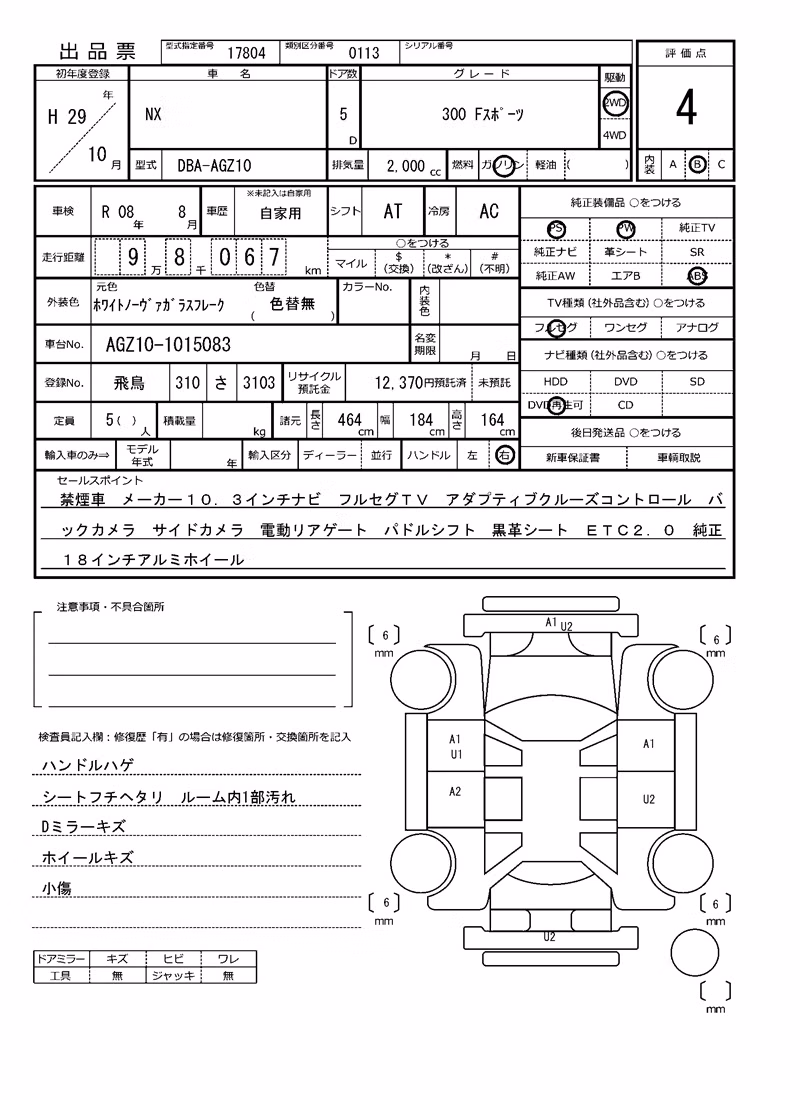 出品票 型式指定番号 17804 類別区分番号 0113 シリアル番号
評価点
4
内装 A B C
初年度登録 車名 ドア数 グレード 駆動
H 29 年 10 月 NX 5 D 300 Fスポーツ 2WD 4WD
型式 DBA-AGZ10 排気量 2,000 cc 燃料 ガソリン 軽油 ( )
車検 R 08 年 8 月 車歴 ※未記入は自家用 自家用 シフト AT 冷房 AC
走行距離 9 万 8 千 0 6 7 km ○をつける マイル $ (交換) * (改ざん) # (不明)
外装色 元色 ホワイトノーヴァガラスフレーク 色替 ( 色替無 ) カラーNo. 内装色
車台No. AGZ10-1015083 名変期限 月 日
登録No. 飛鳥 310 さ 3103 リサイクル預託金 12,370円預託済 未預託
定員 5( ) 人 積載量 kg 諸元 長さ 464 cm 幅 184 cm 高さ 164 cm
輸入車のみ⇒ モデル年式 年 輸入区分 ディーラー 並行 ハンドル 左 右
純正装備品 ○をつける
PS PW 純正TV
純正ナビ 革シート SR
純正AW エアB ABS
TV種類(社外品含む)○をつける
フルセグ ワンセグ アナログ
ナビ種類(社外品含む)○をつける
HDD DVD SD
DVD再生可 CD
後日発送品 ○をつける
新車保証書 車輌取説
セールスポイント
禁煙車 メーカー10.3インチナビ フルセグTV アダプティブクルーズコントロール バ
ックカメラ サイドカメラ 電動リアゲート パドルシフト 黒革シート ETC2.0 純正
18インチアルミホイール
注意事項・不具合箇所
検査員記入欄:修復歴「有」の場合は修復箇所・交換箇所を記入
ハンドルハゲ
シートフチヘタリ ルーム内1部汚れ
Dミラーキズ
ホイールキズ
小傷
ドアミラー キズ ヒビ ワレ
工具 無 ジャッキ 無
A1 U2
6 mm 6 mm
A1
U1
A1
A2 U2
6 mm 6 mm
U2
mm